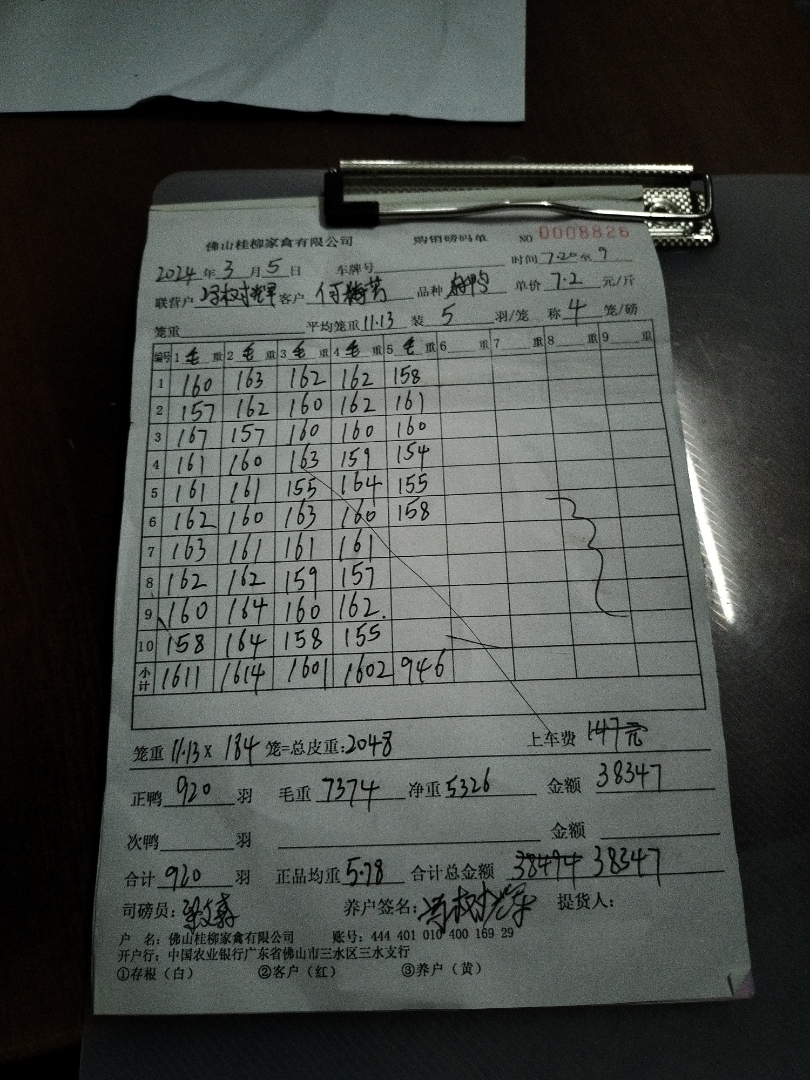 佛山桂柳家禽有限公司 购销磅码单 NO 0008826
2024年3月5日 车牌号 时间7:20至9
联营户 冯树辉 客户 何 品种 鸭 单价 7.2 元/斤
笼重 平均笼重11.13 装 5 羽/笼 称 4 笼/磅
编号 1 毛 重 2 毛 重 3 毛 重 4 毛 重 5 毛 重 6 重 7 重 8 重 9 重
1 160 163 162 162 158
2 157 162 160 162 161
3 167 157 160 160 160
4 161 160 163 159 154
5 161 161 155 164 155
6 162 160 163 160 158
7 163 161 161 161
8 162 162 159 157
9 160 164 160 162.
10 158 164 158 155
小计 1611 1614 1601 1602 946
笼重 11.13 × 184 笼=总皮重:2048 上车费 147元
正鸭 920 羽 毛重 7374 净重 5326 金额 38347
次鸭 羽 金额
合计 920 羽 正品均重 5.78 合计总金额 38494 38347
司磅员: 梁 养户签名: 冯树辉 提货人:
户 名: 佛山桂柳家禽有限公司 账号: 444 401 010 400 169 29
开户行: 中国农业银行广东省佛山市三水区三水支行
①存根（白） ②客户（红） ③养户（黄）